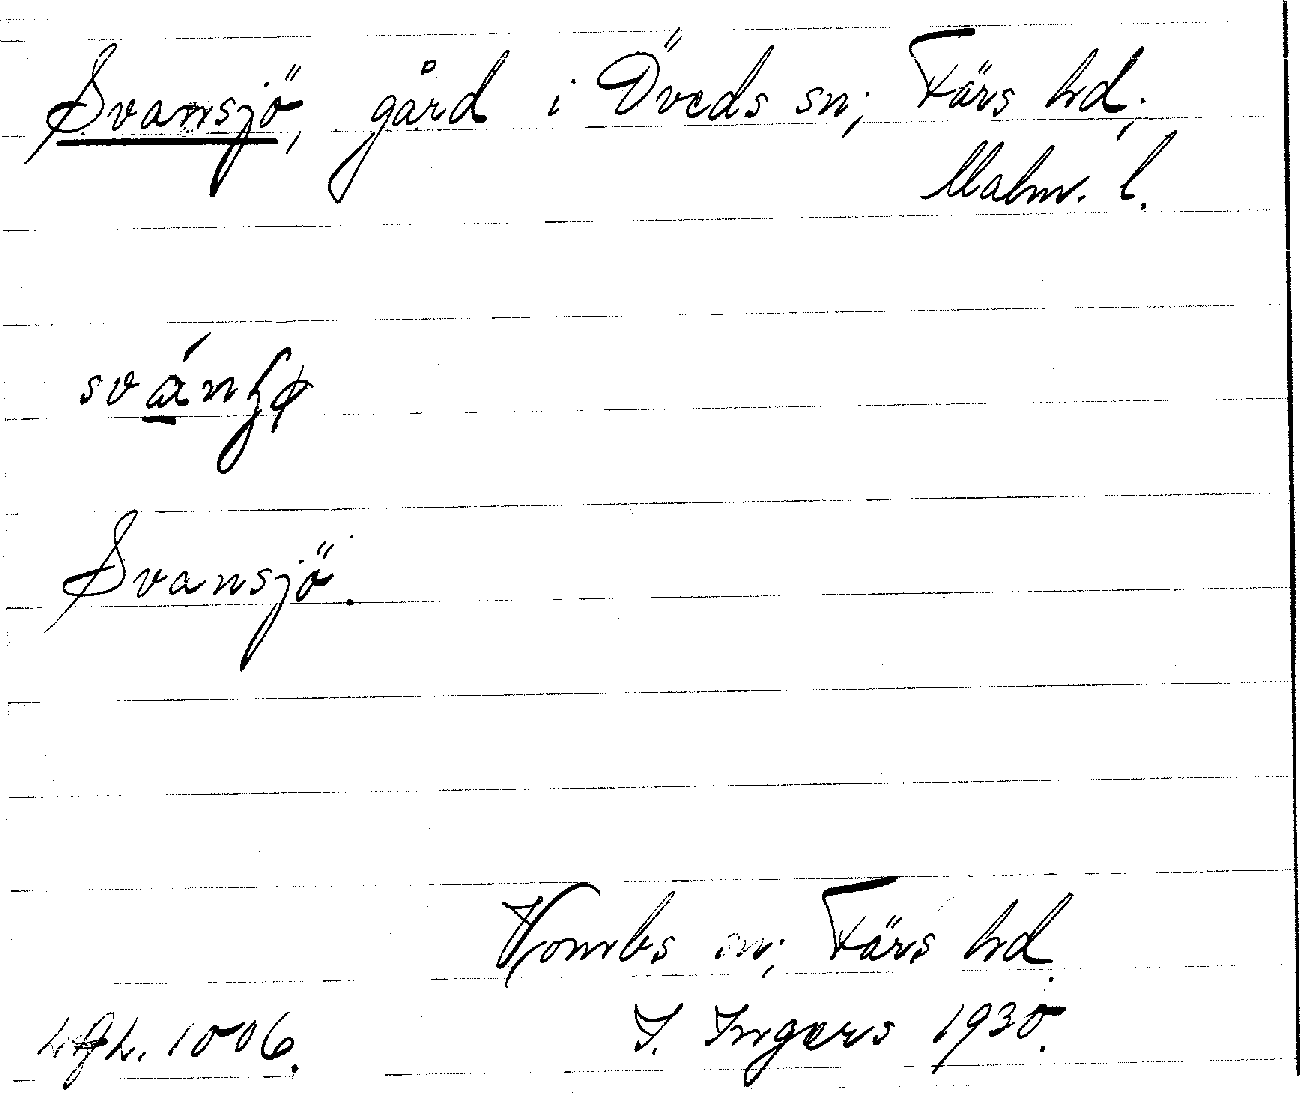 Svansjö, gård i Öveds sn; Färs hd;
Malm. l.
Svansjö.
Vombs sn; Färs hd
I. Ingers 1930.
1006.